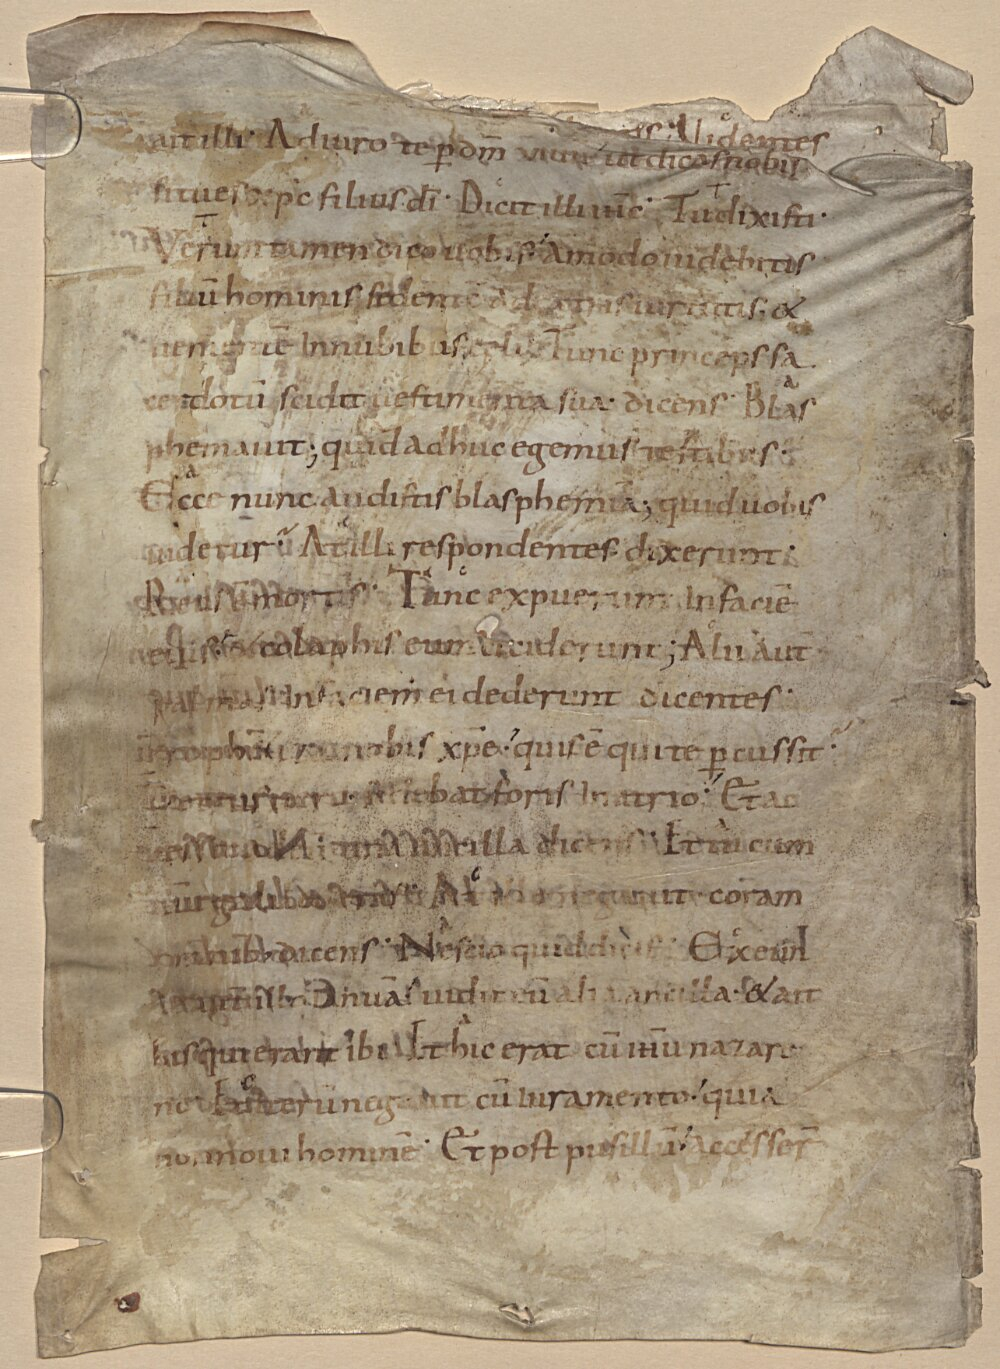 dentes
ait illi· Adiuro te p dm̄ uiuū ut dicas nobis
si tu es xp̄c filius dī· Dicit illi ih̄c· Tu dixisti·
Verum tamen dico uobis· Amodo uidebitis
filiū hominis sedentē ad uirtutis· &
uenientē In nubibus celi· Tunc princeps sa
cerdotū scidit uestimenta sua· dicens· Blas
phemauit; quid adhuc egemus testibus·
Ecce nunc audistis blasphemiā; quid uobis
uidetur· At illi respondentes dixerunt·
Reus ē mortis· Tunc expuerunt In faciē
eius· & colaphis eum ceciderunt; Alii aut̄
palmas In faciem ei dederunt dicentes·
nobis xp̄e· quis ē qui te p cussit·
Petrus uero sedebat foris In atrio· Et ac
una ancilla dicens· Et tu cum
At ille negauit coram
omnibus dicens· Nescio quid dicis· Exeun
Ianuā· uidit eū alia ancilla· & ait
his qui erant ibi· Et hic erat cū ih̄u nazare
no· Et iterū negauit cū Iuramento· quia
non noui hominē· Et post pusillū· accesser̄